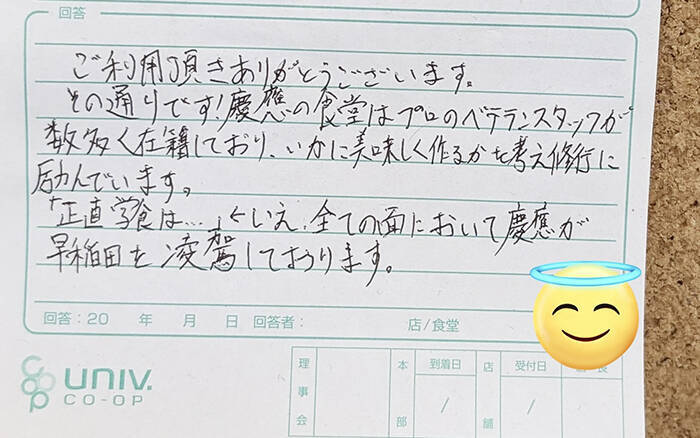 回答
ご利用頂きありがとうございます。
その通りです!慶應の食堂はプロのベテランスタッフが
数多く在籍しており、いかに美味しく作るかを考え修行に
励んでいます。
「正直学食は…」←いえ、全ての面において慶應が
早稲田を凌駕しております。
回答:20 年 月 日 回答者: 店/食堂
UNIV.
CO-OP
理事会
本部
到着日
/
店舗
受付日
/
長